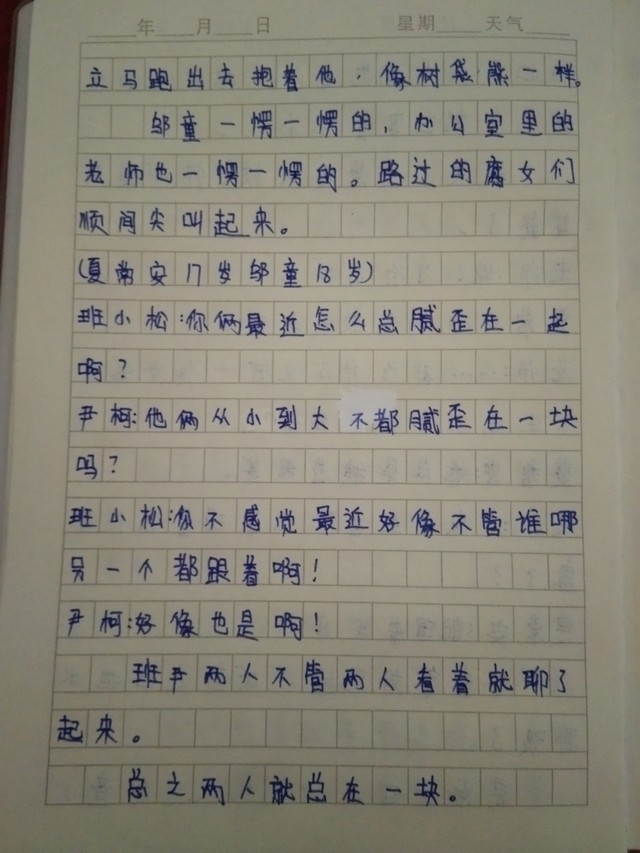 年 月 日 星期 天气
立马跑出去抱着他，像树袋熊一样。
邬童一愣一愣的，办公室里的
老师也一愣一愣的。路过的腐女们
顺间尖叫起来。
(夏常安17岁邬童18岁)
班小松:你俩最近怎么总腻歪在一起
啊？
尹柯:他俩从小到大不都腻歪在一块
吗？
班小松:你不感觉最近好像不管谁哪
另一个都跟着啊！
尹柯:好像也是啊！
班尹两人不管两人看着就聊了
起来。
总之两人就总在一块。